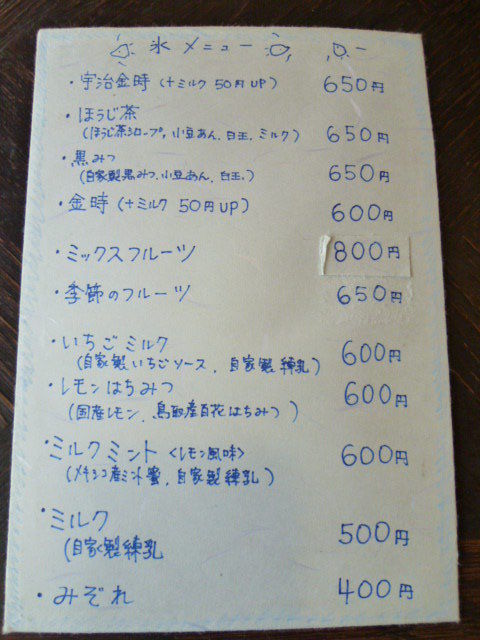 氷メニュー
・宇治金時(+ミルク 50円UP) 650円
・ほうじ茶
(ほうじ茶シロップ, 小豆あん, 白玉, ミルク) 650円
・黒みつ
(自家製黒みつ, 小豆あん, 白玉,) 650円
・金時(+ミルク 50円UP) 600円
・ミックスフルーツ 800円
・季節のフルーツ 650円
・いちごミルク 600円
(自家製いちごソース, 自家製練乳)
・レモンはちみつ 600円
(国産レモン, 鳥取産百花はちみつ)
・ミルクミント〈レモン風味〉 600円
(メキシコ産ミント蜜, 自家製練乳)
・ミルク 500円
(自家製練乳
・みぞれ 400円